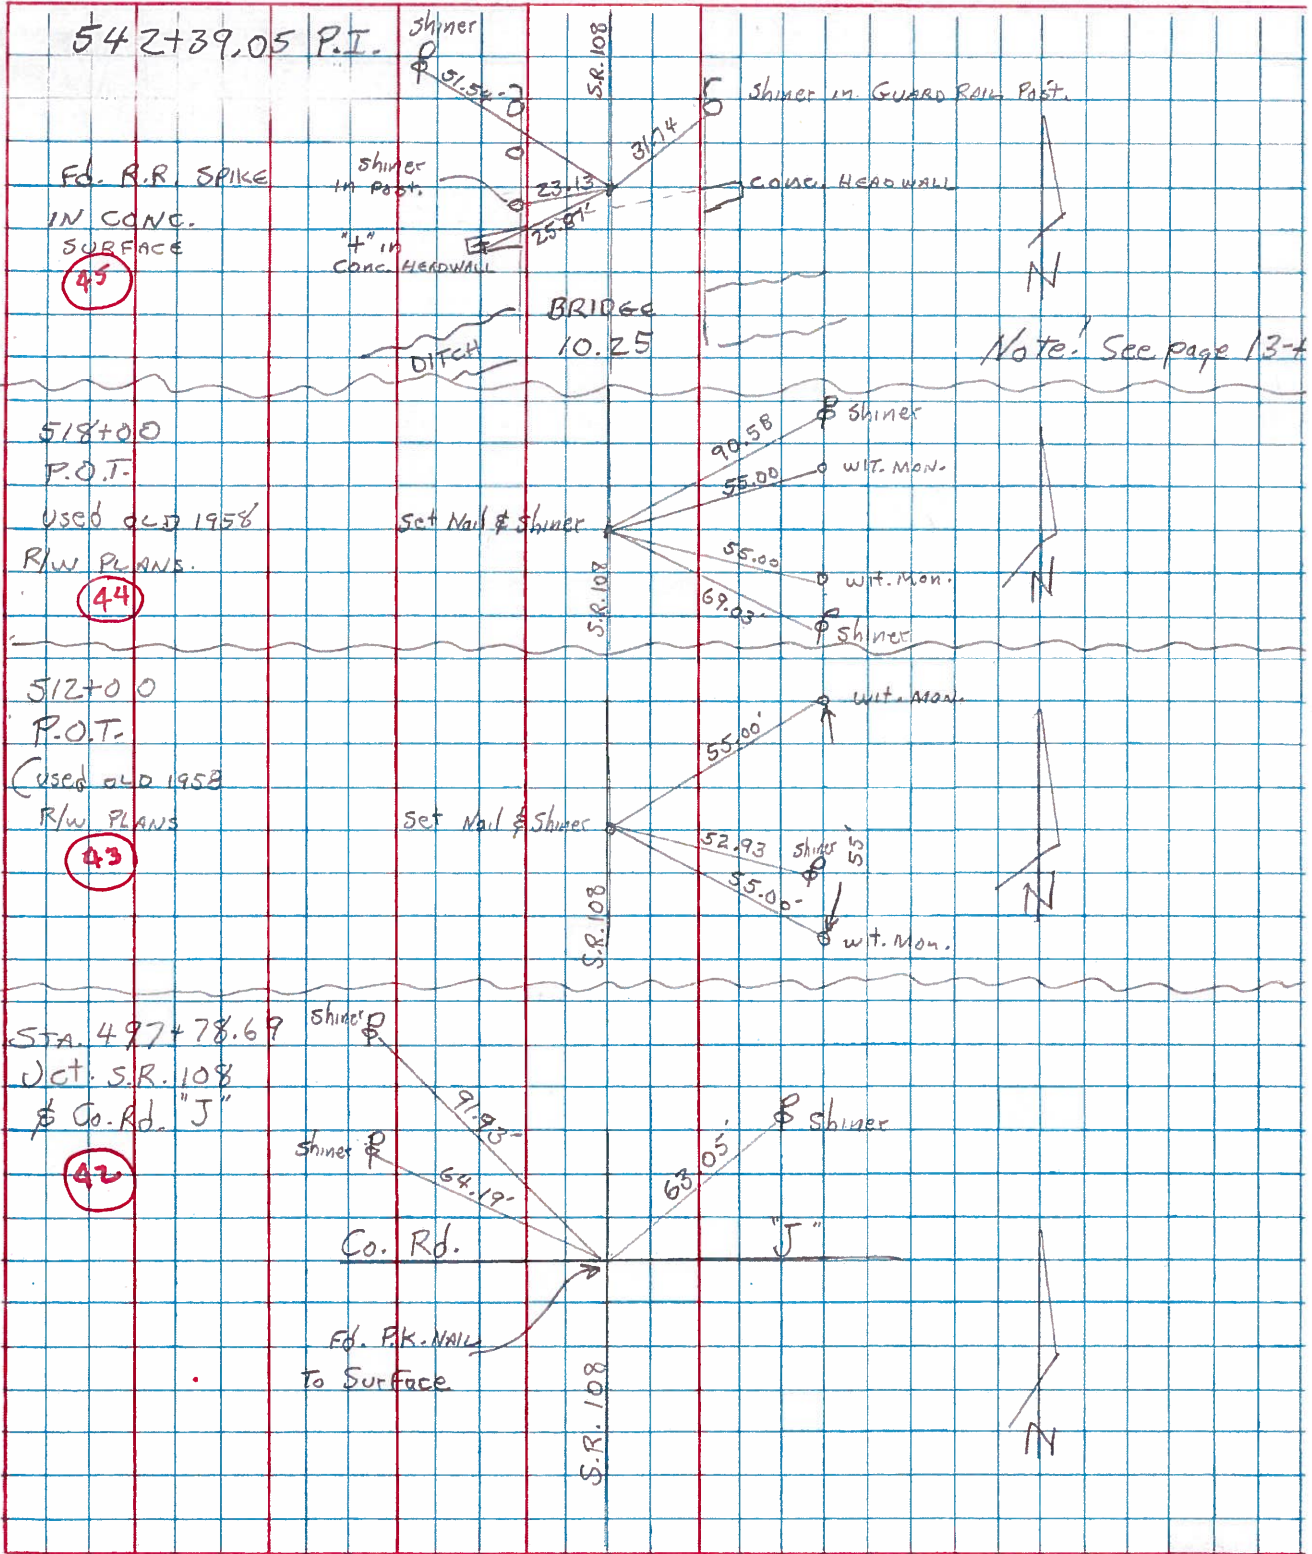 542+39.05 P.I.
Shiner
51.54'
S.R. 108
31.74
Shiner in GUARD RAIL Post.
Fd. R.R. SPIKE
IN CONC.
SURFACE
45
Shiner
in Post.
23.13
25.87'
"+" in
CONC. HEADWALL
CONC. HEADWALL
N
BRIDGE
10.25
DITCH
Note! See page 13-A
518+00
P.O.T.
Used OLD 1958
R/W PLANS.
44
Set Nail & Shiner
S.R. 108
90.58
Shiner
55.00
WIT. MON.
55.00
Wit. Mon.
69.03'
Shiner
N
512+00
P.O.T.
(used OLD 1958
R/W PLANS
43
Set Nail & Shiner
S.R. 108
55.00'
Wit. Mon.
52.93
Shiner
55'
55.00'
Wit. Mon.
N
STA. 497+78.69
Jct. S.R. 108
& Co. Rd. "J"
42
Shiner
91.93'
Shiner
64.19'
63.05'
Shiner
Co. Rd. "J"
Fd. P.K. NAIL
To Surface
S.R. 108
N